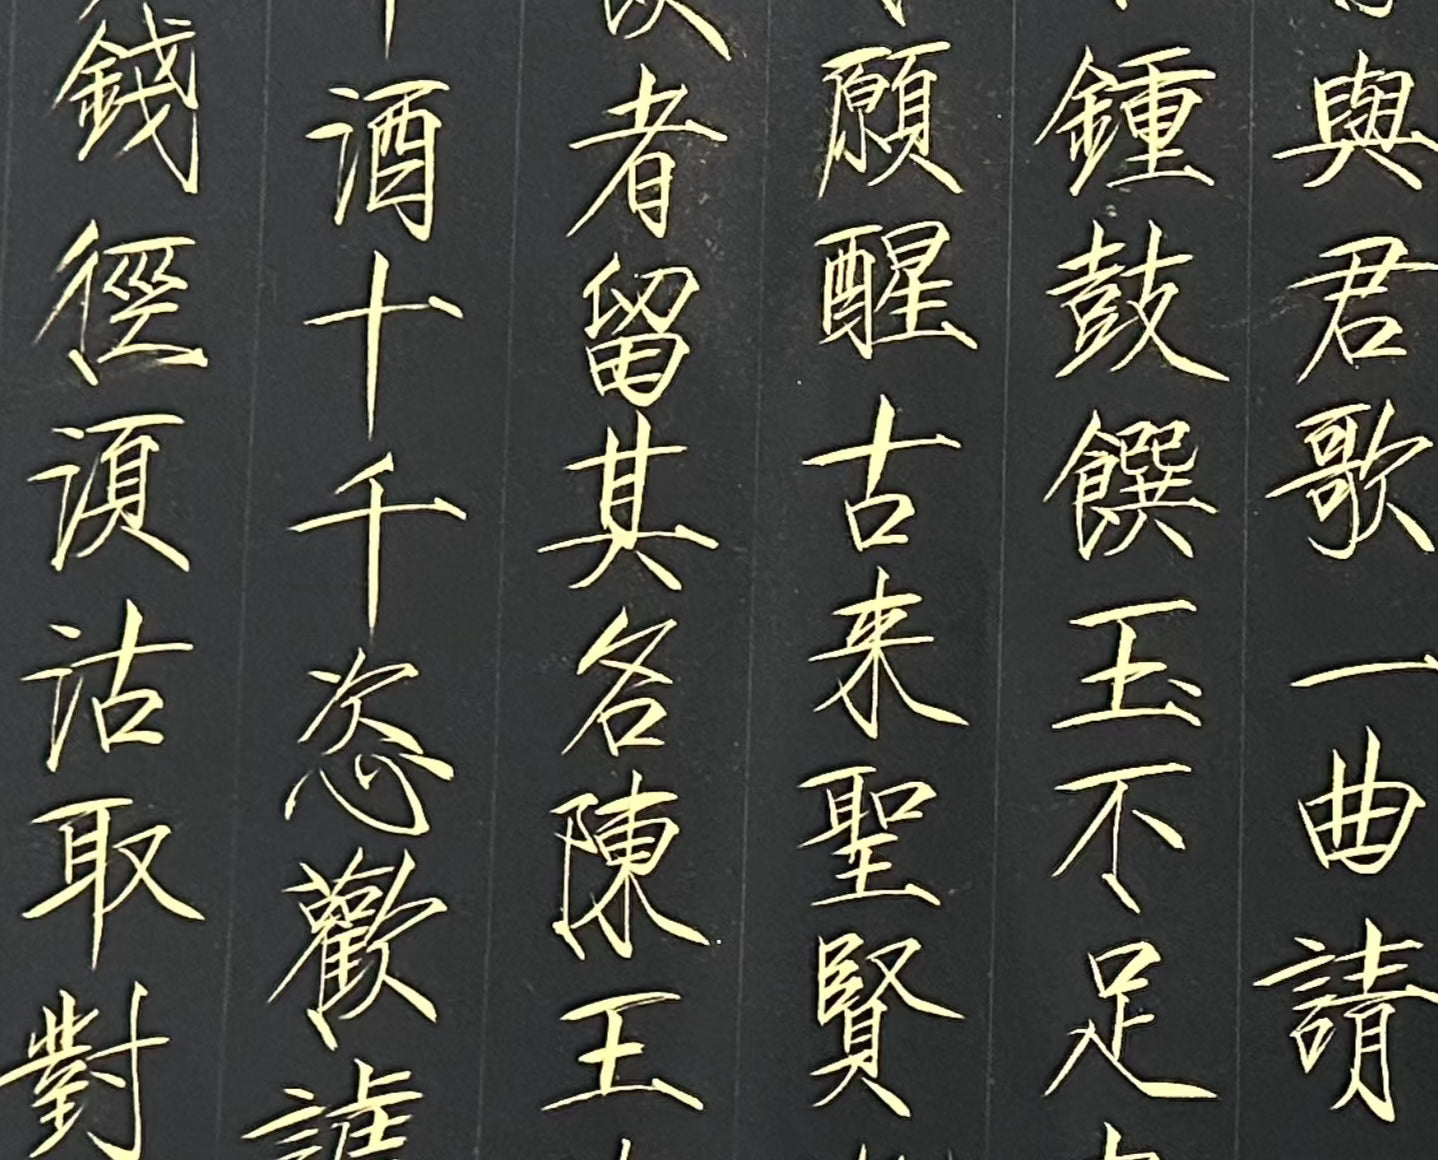 與君歌一曲請
鍾鼓饌玉不足
願醒古来聖賢
者留其名陳王
酒十千恣歡謔
錢徑須沽取對